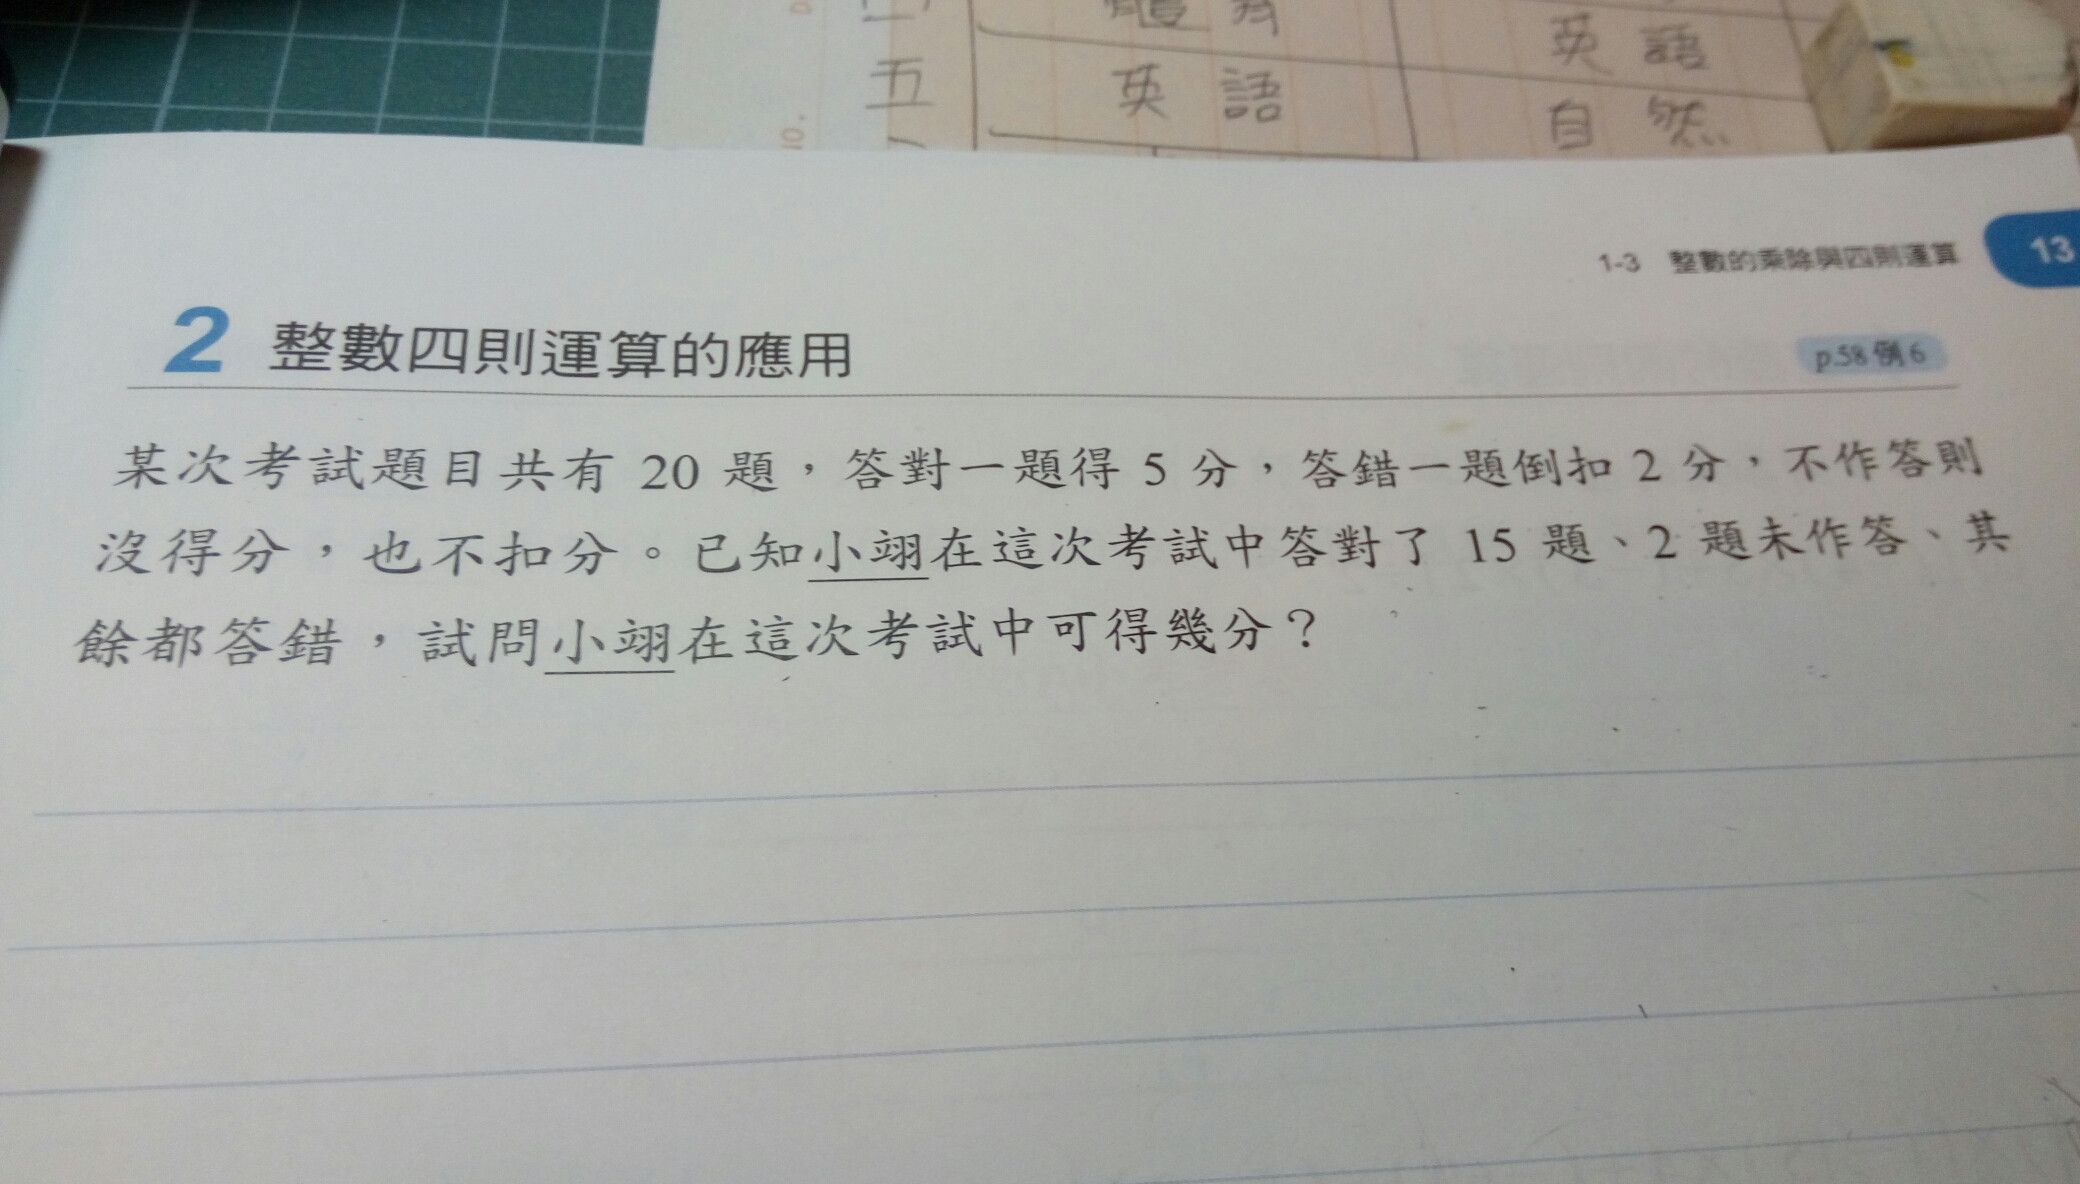 五
英語
英語
自然
NO.
1-3 整數的乘除與四則運算
13
2 整數四則運算的應用
p.58 例 6
某次考試題目共有 20 題，答對一題得 5 分，答錯一題倒扣 2 分，不作答則
沒得分，也不扣分。已知小翊在這次考試中答對了 15 題、2 題未作答、其
餘都答錯，試問小翊在這次考試中可得幾分？